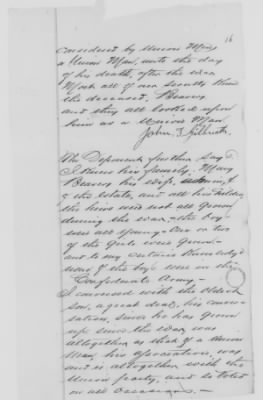 16
considered by Union Men
a Union Man, unto the day
of his death, after the war
Most all of our County knew
the deceased, Beavers
and they all looked upon
him as a Union Man
John T
The Deponent further says
I knew his family, Mary
Beavers his wife,
& the Estate, and all his children
the heirs was not all grown
during the war, the boys
were all young, one or two
of the Girls were grown
and to my certain knowledge
none of the boys were in the
Confederate Army
I conversed with the oldest
son, a great deal, his conver-
sation, since he has grown
up since the war, was
altogether as that of a Union
Man, his association, was
and is altogether with the
Union party, and is
on all occasions